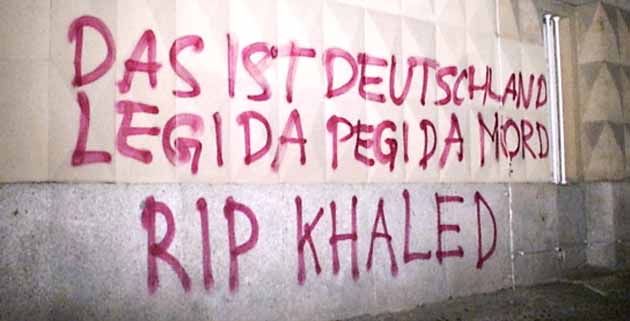 DAS IST DEUTSCHLAND
LEGIDA PEGIDA MORD
RIP KHALED